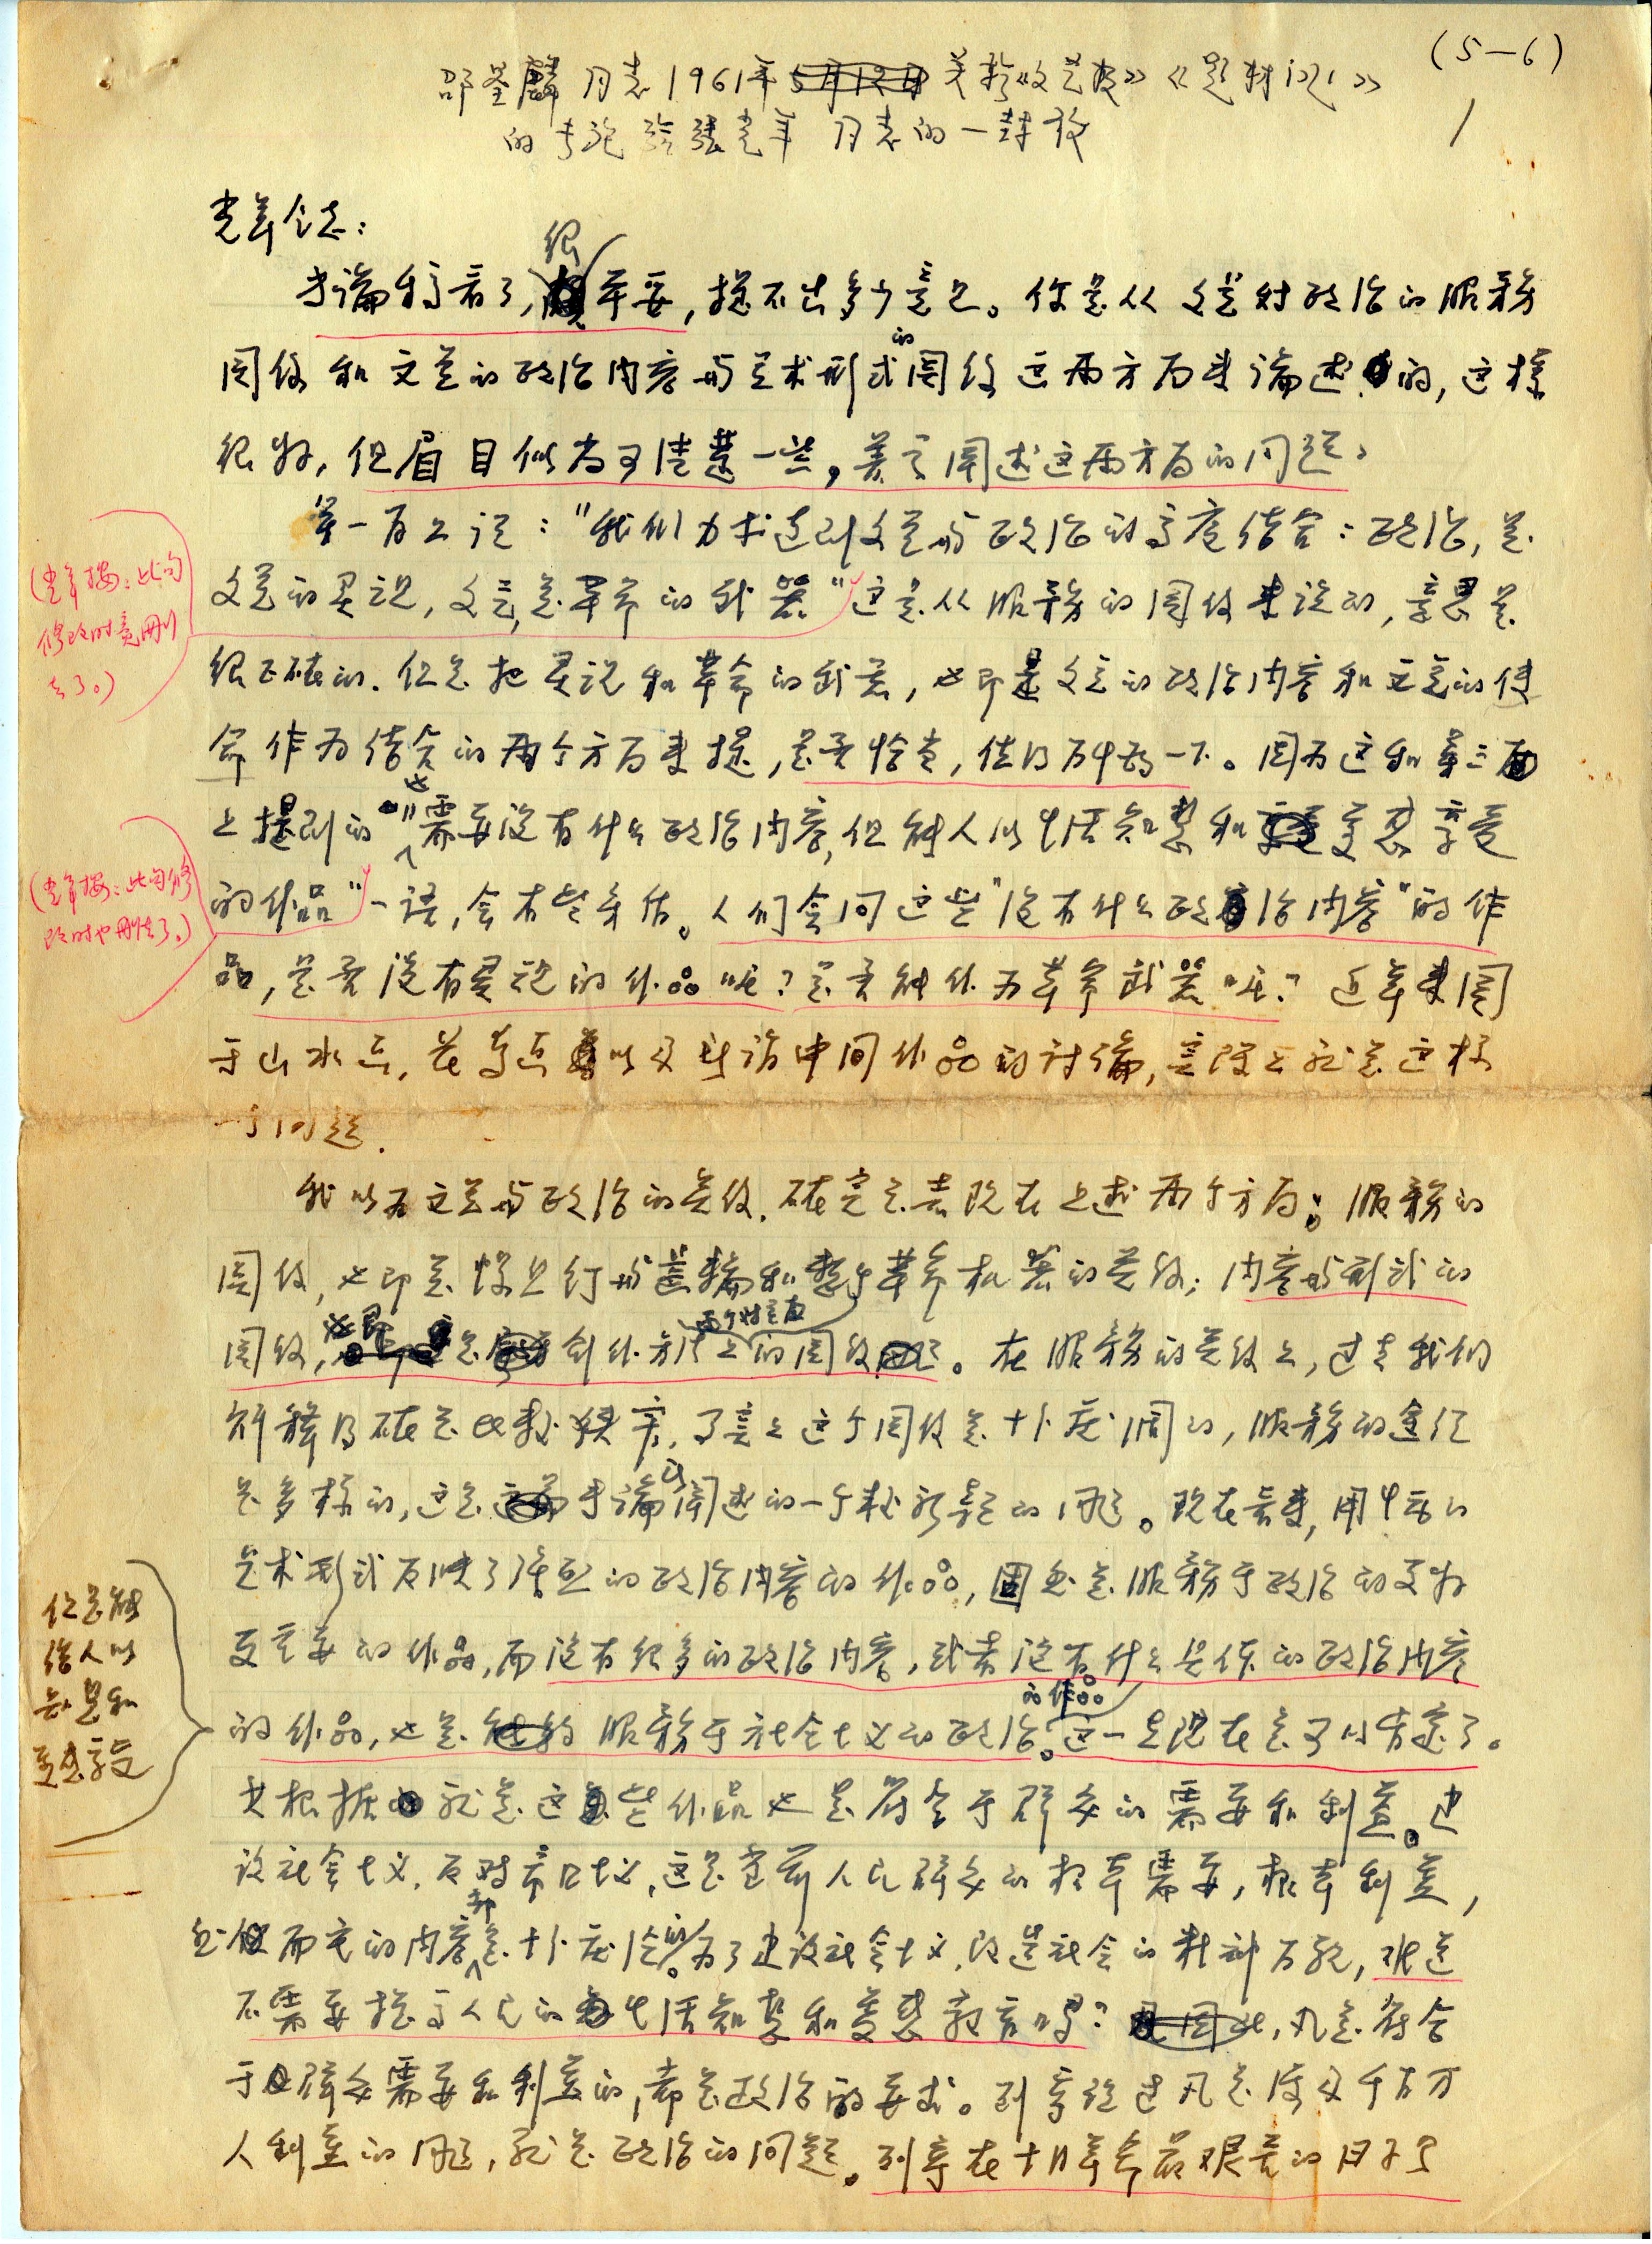 (5-6)
1
邵荃麟同志1961年5月12日关于《文艺报》《题材问题》
的专论给张光年同志的一封信
光年同志：
专论稿看了，很重要，提不出多少意见。你是从文艺对政治的服務
関係和文艺的政治内容与艺术形式的関係这两方面来論述的，这樣
很好，但眉目似尚可清楚一些，着重阐述这两方面的问题。
第一頁上说："我们力求达到文艺与政治的高度结合：政治，是
文艺的灵魂，文艺，是革命的武器"这是从服務的関係来说的，意思是
很正确的。但是把灵魂和革命的武器，也即是文艺的政治内容和文艺的使
命作为结合的两个方面来提，是否恰当，值得研究一下。因为这和第三面
上提到的"也需要没有什么政治内容，但能给人以生活知慧和美感享受
的作品"一语，会有些矛盾。人们会问这些"没有什么政治内容"的作
品，是否没有灵魂的作品呢？是否能作为革命武器呢？近年来関
于山水画，花鸟画以及所谓中间作品的讨論，实际上就是这样
一个问题。
(光年按：此句
修改时竟刪
去了。)
(光年按：此句修
改时也刪去了。)
我以为文艺与政治的关係，确实是表现在上述两个方面：服務的
関係，也即是螺丝钉与齒輪和整个革命机器的关係；内容与形式的
関係，也即是创作方法上两个对立面的関係。在服務的关係上，过去我们
解释得确是比较狭窄，事实上这个関係是十分廣阔的，服務的途径
是多样的，这是专論所阐述的一个较新颖的问题。现在看来，用生动的
艺术形式反映了重大的政治内容的作品，固然是服務于政治的更好
更重要的作品，而没有很多的政治内容，或者没有什么具体的政治内容
的作品，也是服務于社会主义的政治的作品。这一点现在是可以肯定了。
但是能
给人以
知慧和
美感享受
其根据就是这些作品也是符合于群众的需要和利益。建
设社会主义，反对帝国主义，这是当前人民群众的根本需要，根本利益，
然而它的内容却是十分廣泛的。为了建设社会主义，改造社会的精神面貌，难道
不需要提高人民的生活知慧和美感教育吗？因此，凡是符合
于群众需要和利益的，都是政治的要求。列宁说过凡是涉及千百万
人利益的问题，就是政治的问题。列宁在十月革命最艰苦的日子里